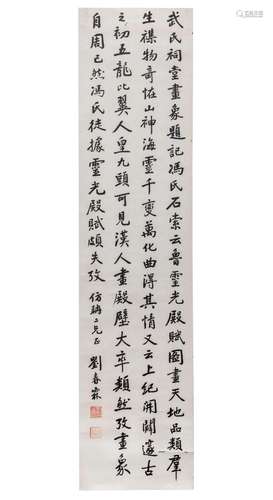 武氏祠堂畫象題記馮氏石索云魯靈光殿賦圖畫天地品類羣
生襍物奇怪山神海靈千變萬化曲得其情又云上紀開闢遂古
之初五龍比翼人皇九頭可見漢人畫殿壁大率類然攷畫象
自周已然馮氏徒據靈光殿賦頗失攷
仿瑀二兄正 劉春霖